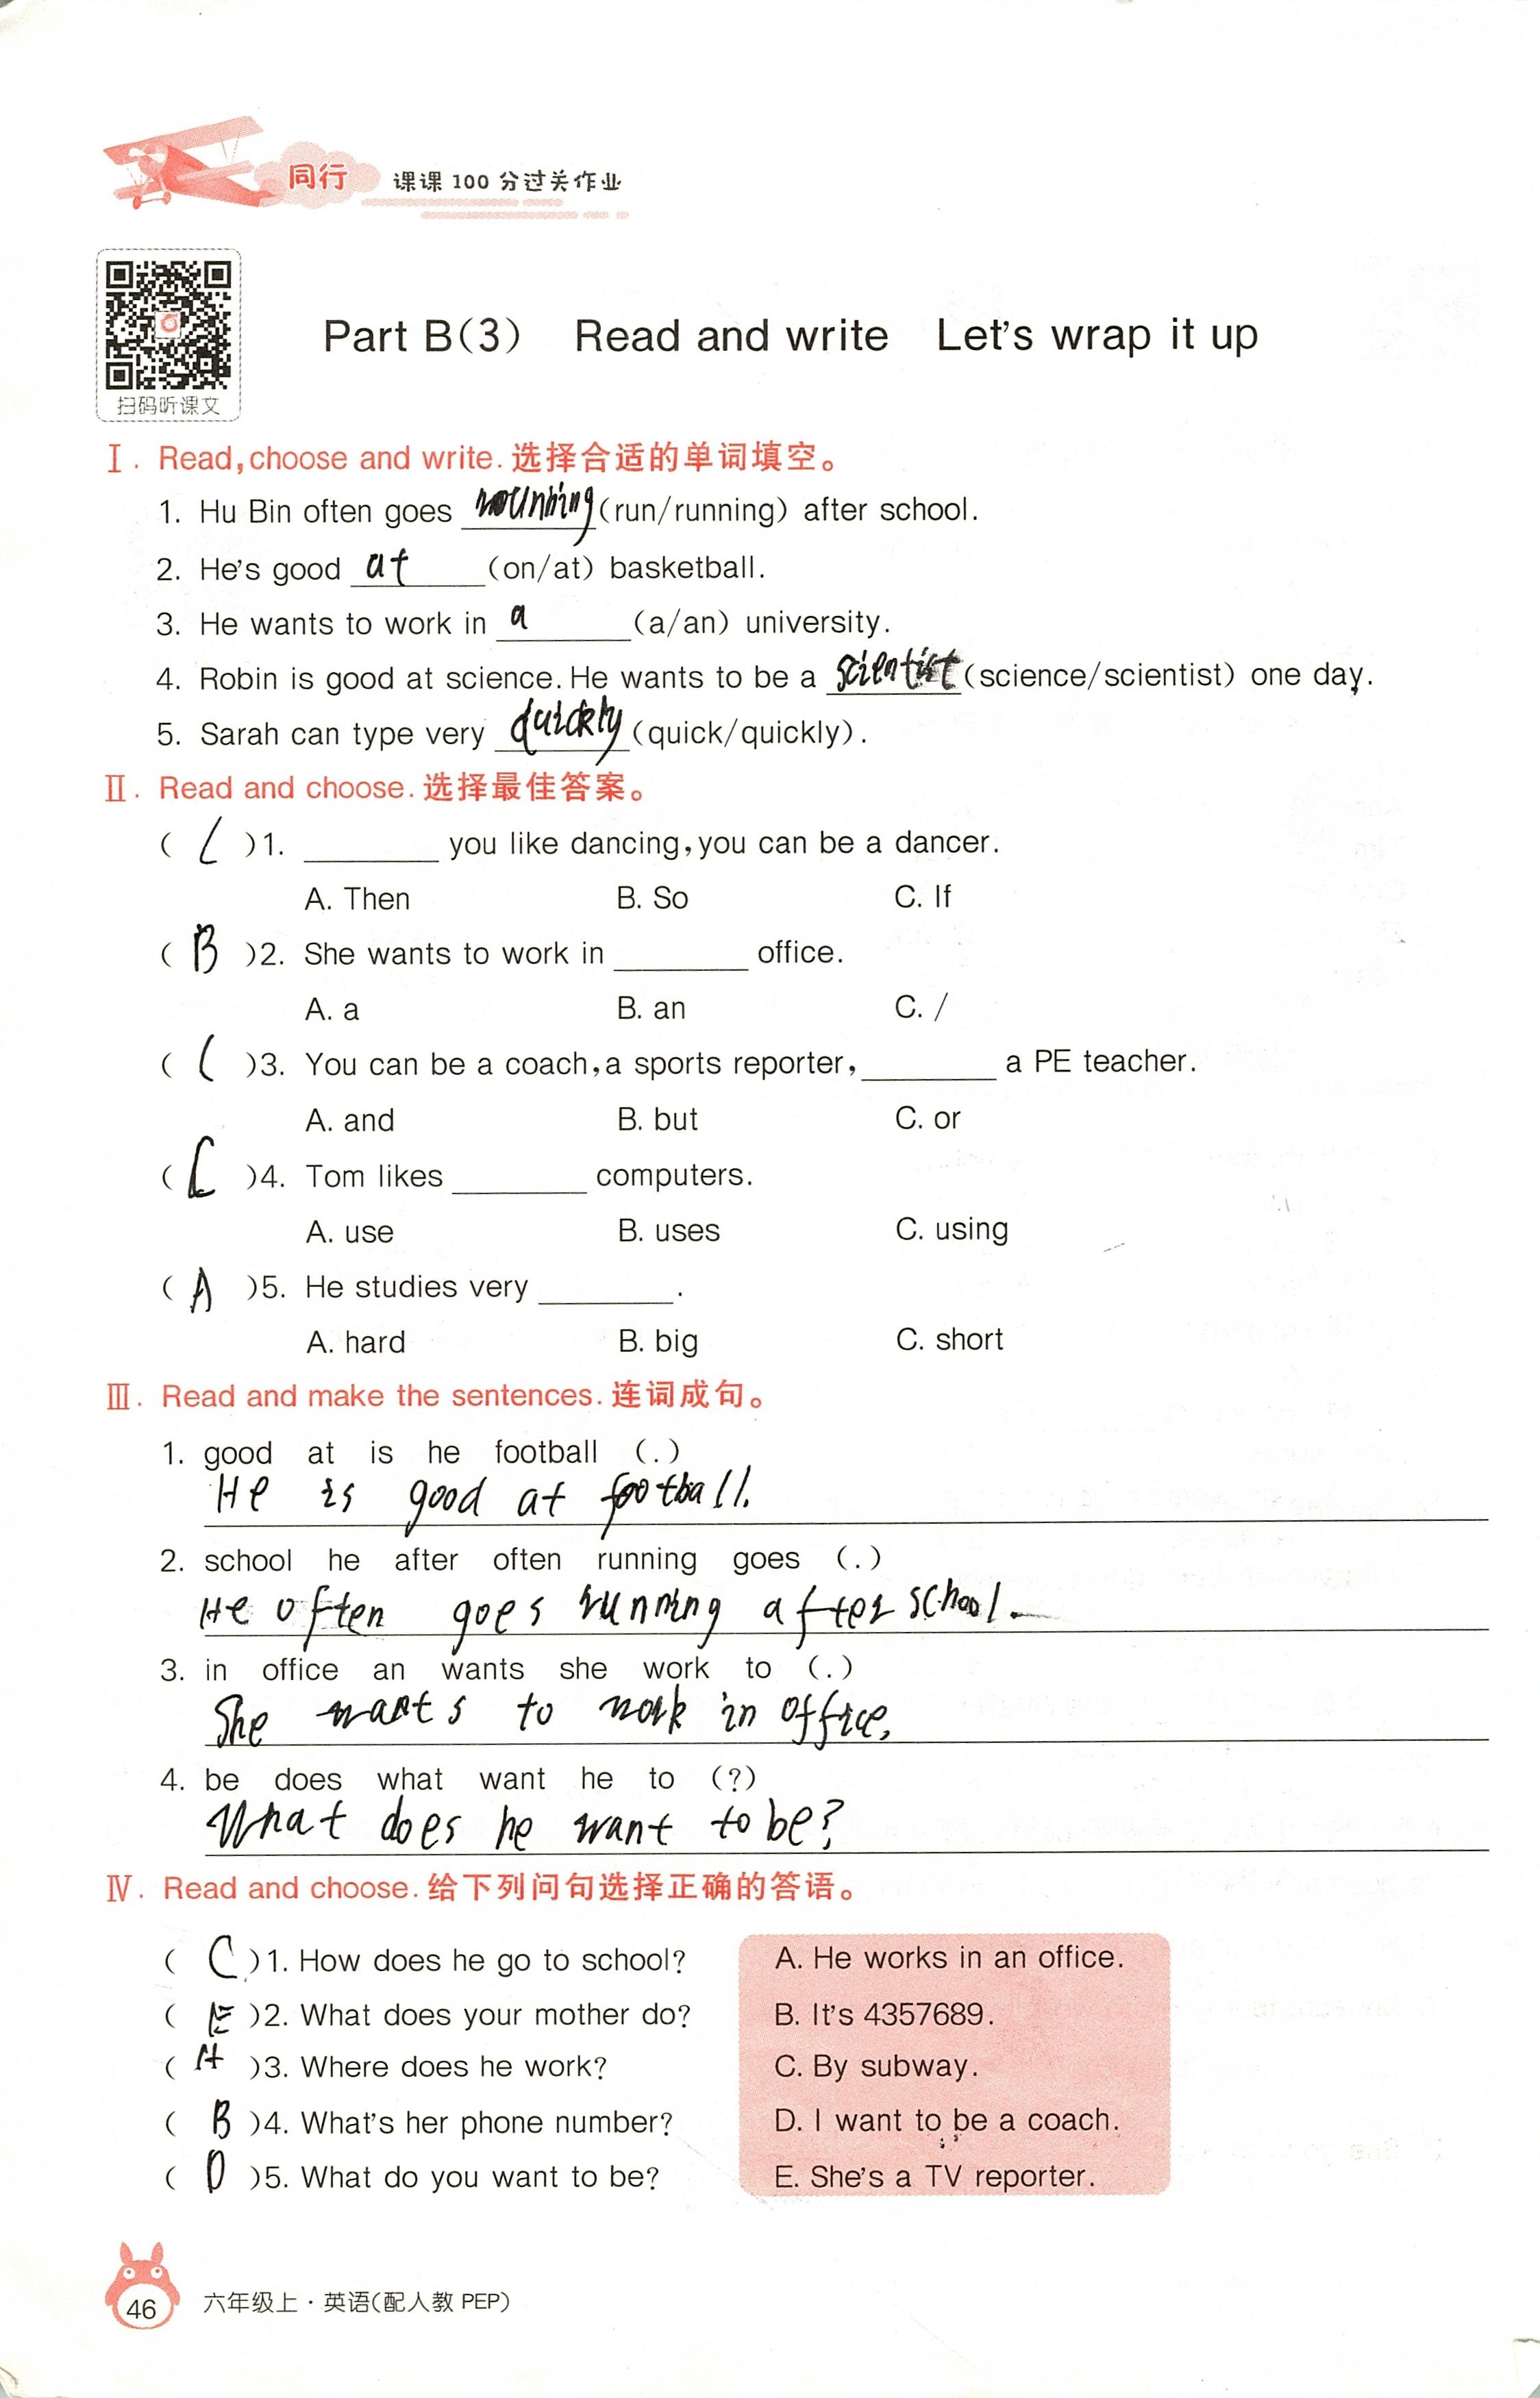 同行 课课100分过关作业
扫码听课文
Part B(3) Read and write Let's wrap it up
Ⅰ. Read, choose and write. 选择合适的单词填空。
1. Hu Bin often goes running (run/running) after school.
2. He's good at (on/at) basketball.
3. He wants to work in a (a/an) university.
4. Robin is good at science. He wants to be a scientist (science/scientist) one day.
5. Sarah can type very quickly (quick/quickly).
Ⅱ. Read and choose. 选择最佳答案。
( C )1. ________ you like dancing, you can be a dancer.
A. Then B. So C. If
( B )2. She wants to work in ________ office.
A. a B. an C. /
( C )3. You can be a coach, a sports reporter, ________ a PE teacher.
A. and B. but C. or
( C )4. Tom likes ________ computers.
A. use B. uses C. using
( A )5. He studies very ________.
A. hard B. big C. short
Ⅲ. Read and make the sentences. 连词成句。
1. good at is he football (.)
He is good at football.
2. school he after often running goes (.)
He often goes running after school.
3. in office an wants she work to (.)
She wants to work in office.
4. be does what want he to (?)
What does he want to be?
Ⅳ. Read and choose. 给下列问句选择正确的答语。
( C )1. How does he go to school? A. He works in an office.
( E )2. What does your mother do? B. It's 4357689.
( A )3. Where does he work? C. By subway.
( B )4. What's her phone number? D. I want to be a coach.
( D )5. What do you want to be? E. She's a TV reporter.
46 六年级上·英语(配人教 PEP)